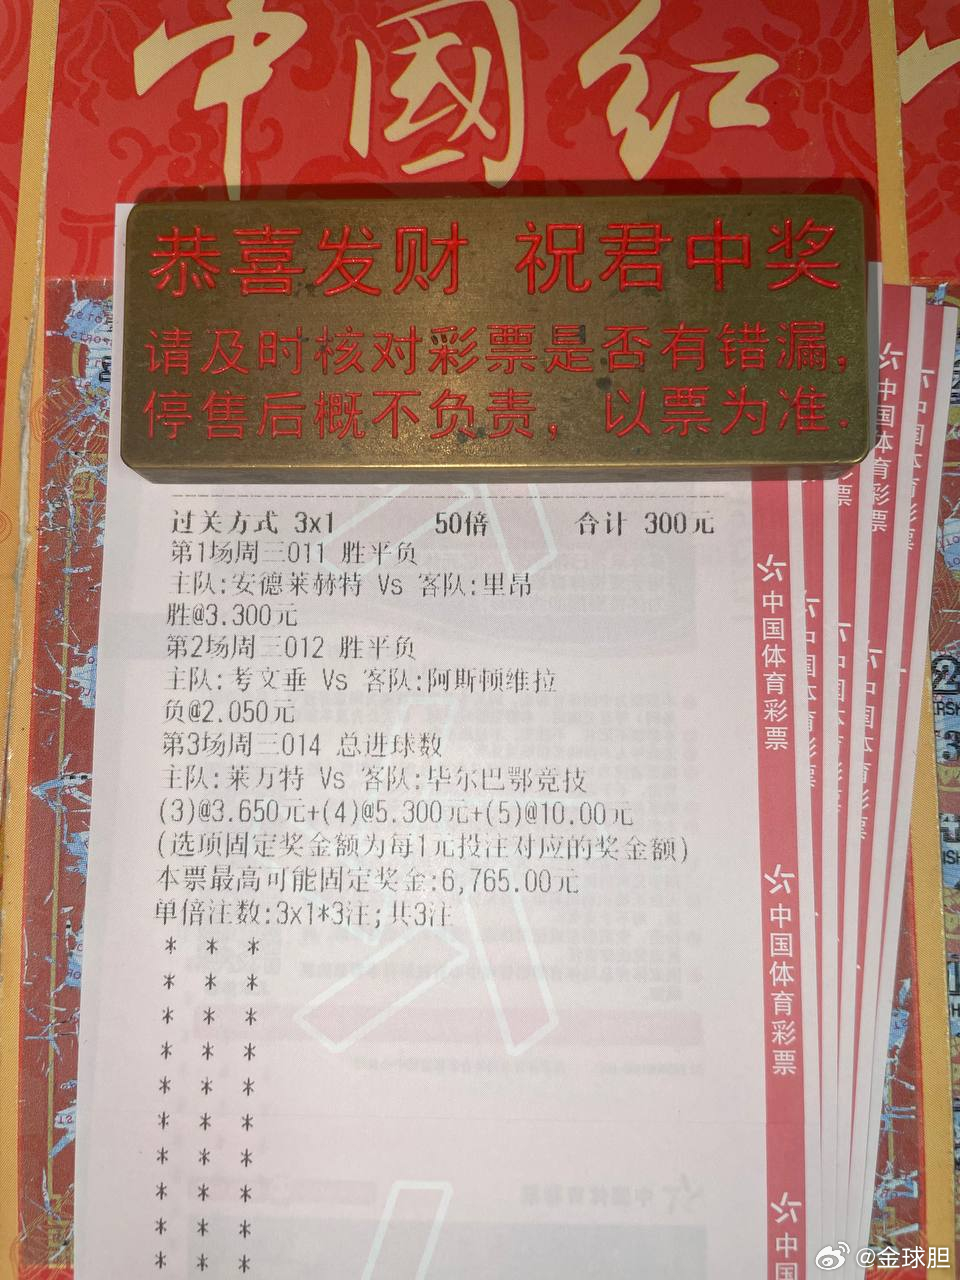 中國红
恭喜发财 祝君中奖
请及时核对彩票是否有错漏,
停售后概不负责, 以票为准.
过关方式 3x1 50倍 合计 300元
第1场周三011 胜平负
主队:安德莱赫特 Vs 客队:里昂
胜@3.300元
第2场周三012 胜平负
主队:考文垂 Vs 客队:阿斯顿维拉
负@2.050元
第3场周三014 总进球数
主队:莱万特 Vs 客队:毕尔巴鄂竞技
(3)@3.650元+(4)@5.300元+(5)@10.00元
(选项固定奖金额为每1元投注对应的奖金额)
本票最高可能固定奖金:6,765.00元
单倍注数:3x1*3注;共3注
* * *
* * *
* * *
* * *
* * *
* * *
* * *
* * *
* * *
* * *
中国体育彩票
中国体育彩票
中国
中国体育彩票
中国体育彩票
@金球胆